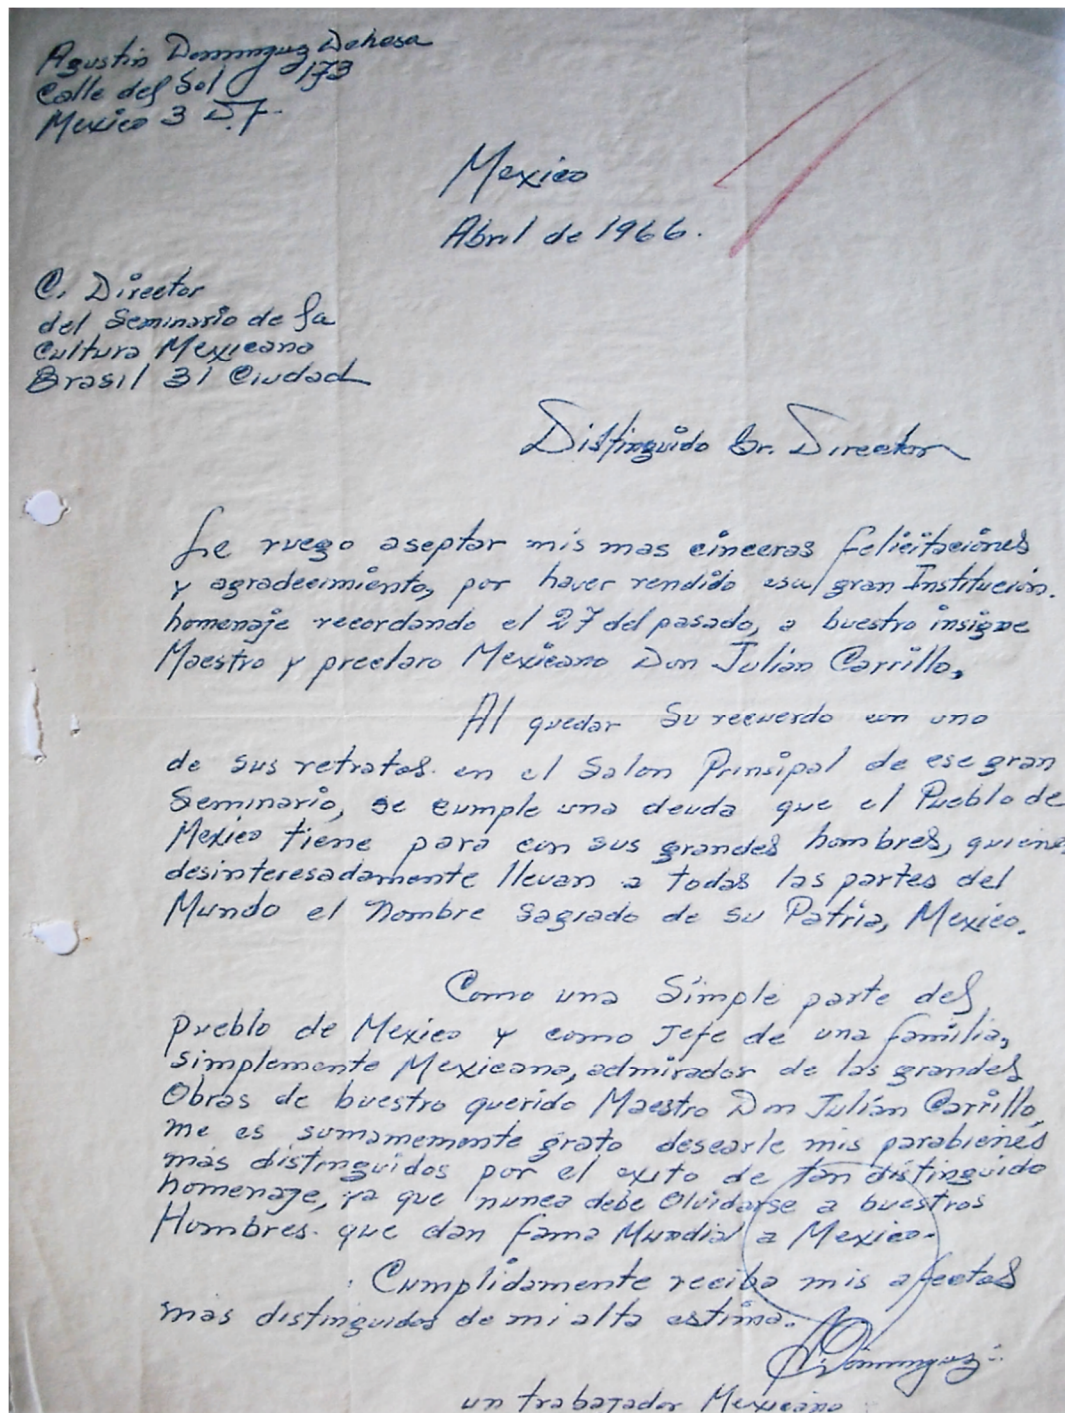 Agustin Dominguz Dehesa
Calle del Sol 173
Mexico 3 D.F.
Mexico
Abril de 1966.
C. Director
del Seminario de la
Cultura Mexicana
Brasil 31 Ciudad
Distinguido Sr. Director
Le ruego aseptar mis mas cinceras felicitaciones
y agradecimiento, por haver rendido esa gran Institución.
homenaje recordando el 27 del pasado, a buestro insigne
Maestro y preclaro Mexicano Don Julián Carrillo,
Al quedar su recuerdo con uno
de sus retratos. en el Salon Prinsipal de ese gran
Seminario, se cumple una deuda que el Pueblo de
Mexico tiene para con sus grandes hombres, quienes
desinteresadamente llevan a todas las partes del
Mundo el Nombre Sagrado de su Patria, Mexico.
Como una Simple parte del
Pueblo de Mexico y como Jefe de una familia,
simplemente Mexicana, admirador de las grandes
Obras de buestro querido Maestro Don Julián Carrillo,
me es sumamemente grato desearle mis parabienes
más distinguidos por el exito de tan distinguido
homenaje, ya que nunca debe Olvidarse a buestros
Hombres. que dan fama Mundial a Mexico.
Cumplidamente reciba mis afectos
mas distinguidos de mi alta estima.
A. Dominguez
un trabajador Mexicano